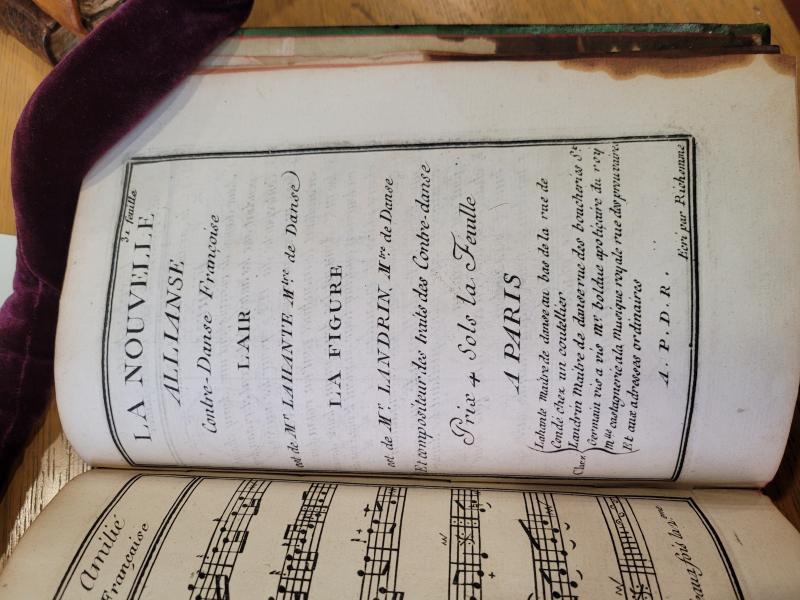 31 feuille
LA NOUVELLE
ALLIANSE
Contre-Danse Françoise
L'AIR
est de Mr LAHANTE Mtre de Danse
LA FIGURE
est de Mr LANDRIN, Mtre de Danse
Et compositeur des traits des Contre-danse
Prix 4 Sols la Feuille
A PARIS
Lahante maitre de danse au bas de la rue de
Condé chez un coutellier
Chez Landrin Maitre de danse rue des boucheries St
Germain vis a vis mr bolduc apotiçaire du roy
mlle castagnerie a la musique royale rue des prouvaire
Et aux adresses ordinaires
A. P. D. R.
Ecri par Richomme
Amitié
Françoise
fois la